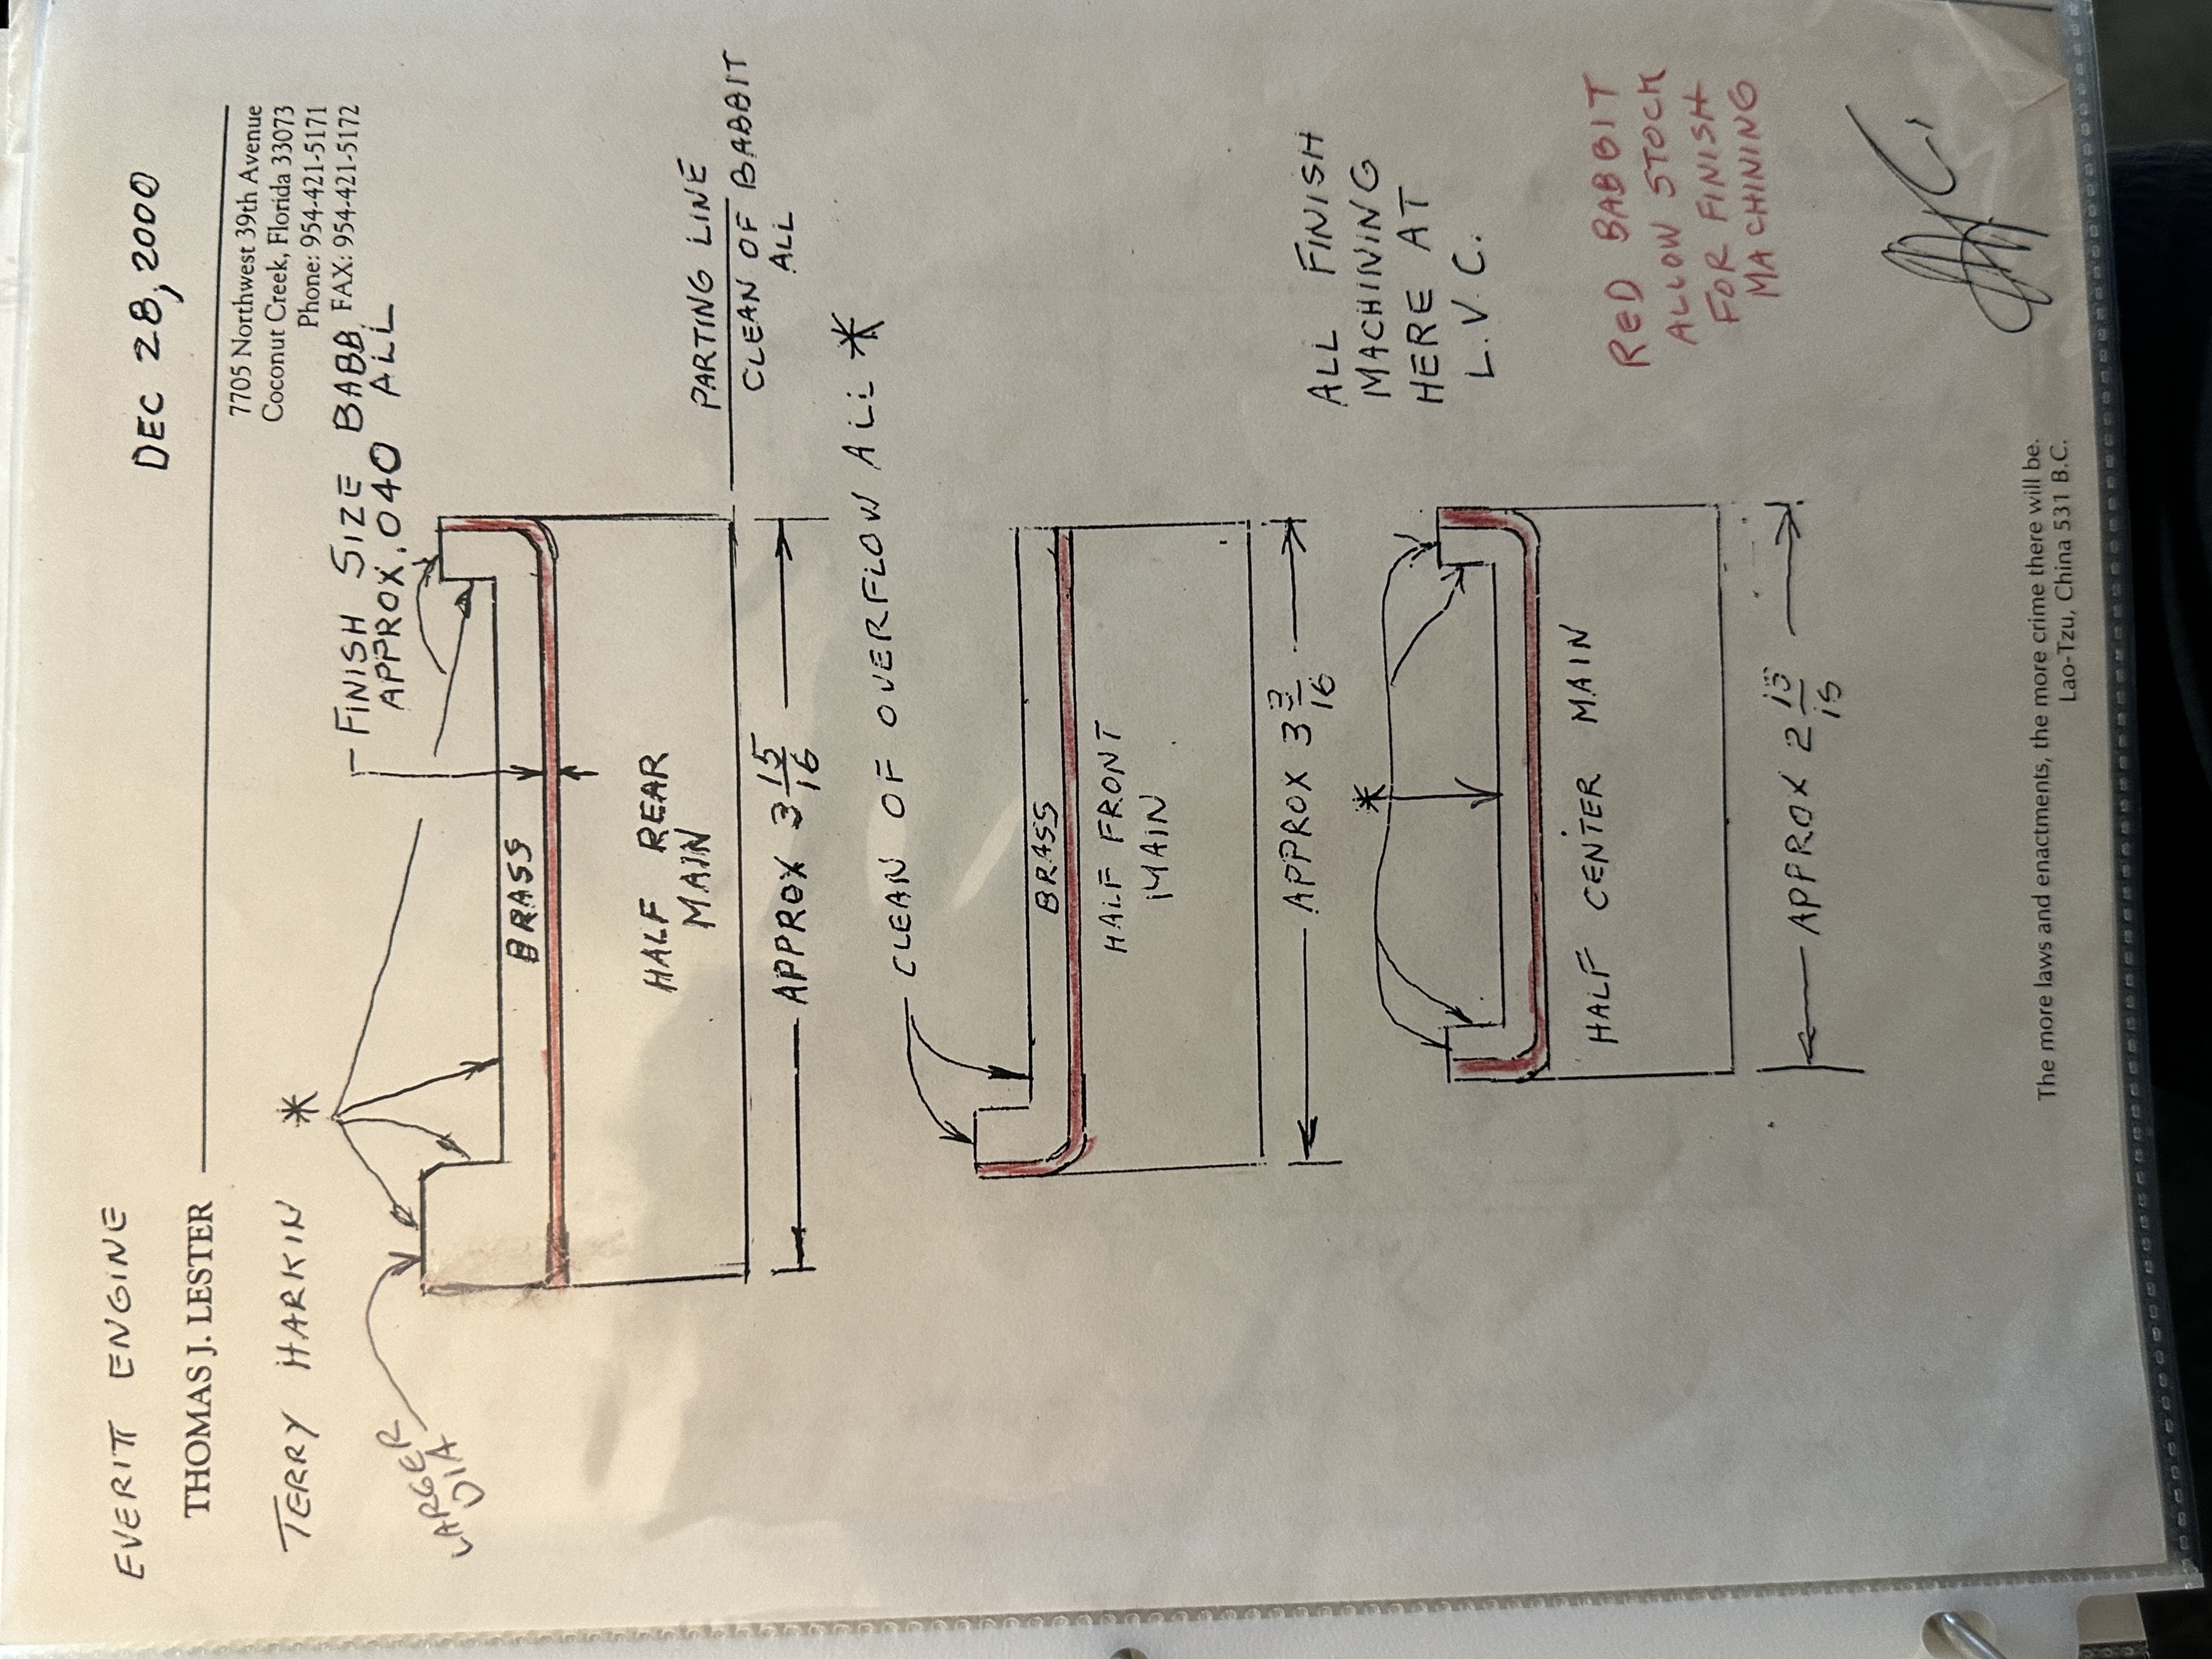 EVERITT ENGINE
DEC 28, 2000
THOMAS J. LESTER
7705 Northwest 39th Avenue
Coconut Creek, Florida 33073
Phone: 954-421-5171
FAX: 954-421-5172
TERRY HARKIN
*
FINISH SIZE BABB
APPROX .040 ALL
LARGER
DIA
BRASS
HALF REAR
MAIN
PARTING LINE
CLEAN OF BABBIT
ALL
APPROX 3 15/16
CLEAN OF OVERFLOW ALL *
BRASS
HALF FRONT
MAIN
APPROX 3 3/16
ALL FINISH
MACHINING
HERE AT
L.V.C.
*
HALF CENTER MAIN
APPROX 2 15/15
RED BABBIT
ALLOW STOCK
FOR FINISH
MACHINING
The more laws and enactments, the more crime there will be.
Lao-Tzu, China 531 B.C.